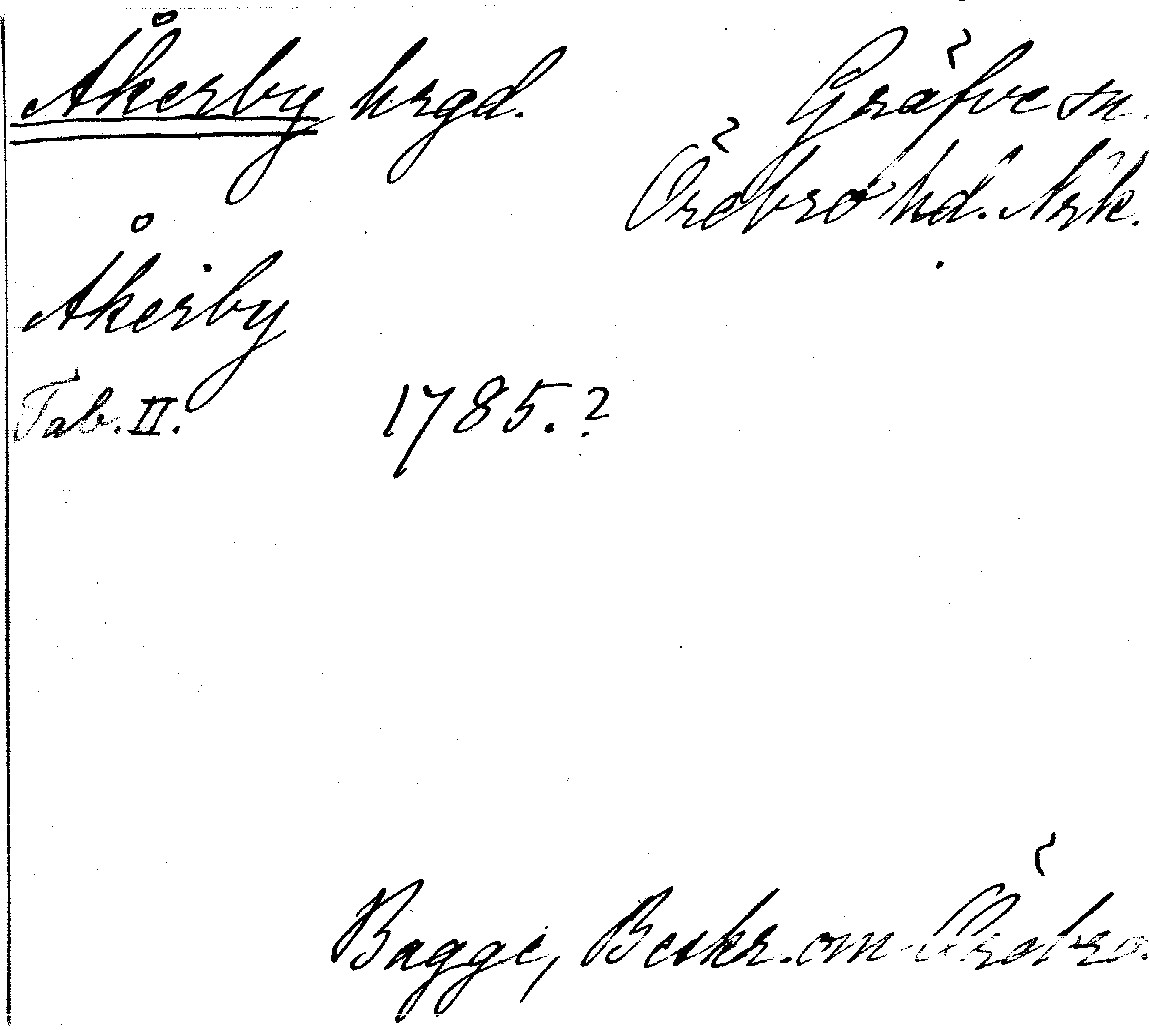 Åkerby hrgd. Gräfve sn.
Örebro hd. Nrk.
Åkerby
Tab. II. 1785.?
Bagge, Beskr. om Örebro.